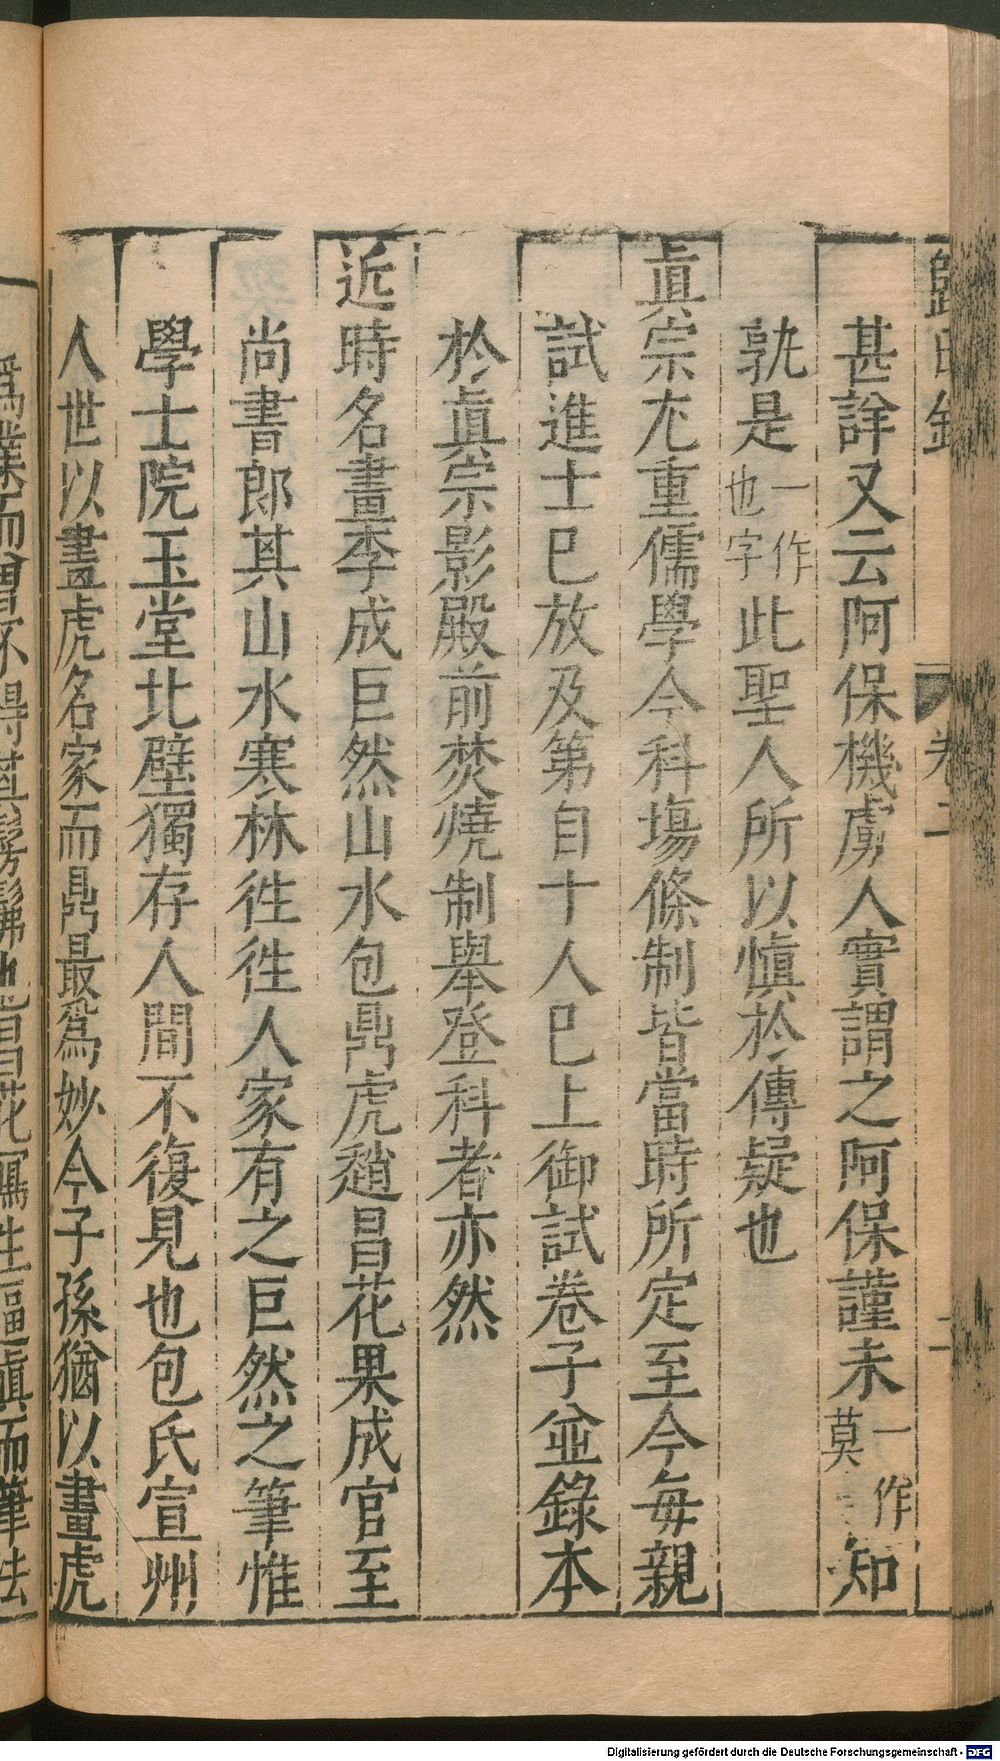 歸田錄 卷二 二
甚詳又云阿保機虜人實謂之阿保謹未一作莫知
孰是一作也字此聖人所以愼於傳疑也
眞宗尤重儒學今科塲條制皆當時所定至今每親
試進士巳放及第自十人巳上御試卷子並錄本
於眞宗影殿前焚燒制舉登科者亦然
近時名畫李成巨然山水包鼎虎趙昌花果成官至
尚書郎其山水寒林徃徃人家有之巨然之筆惟
學士院玉堂北壁獨存人間不復見也包氏宣州
人世以畫虎名家而鼎最爲妙今子孫猶以畫虎
爲業而曾不得其髣髴也昌花寫生逼眞而筆法
Digitalisierung gefördert durch die Deutsche Forschungsgemeinschaft - DFG